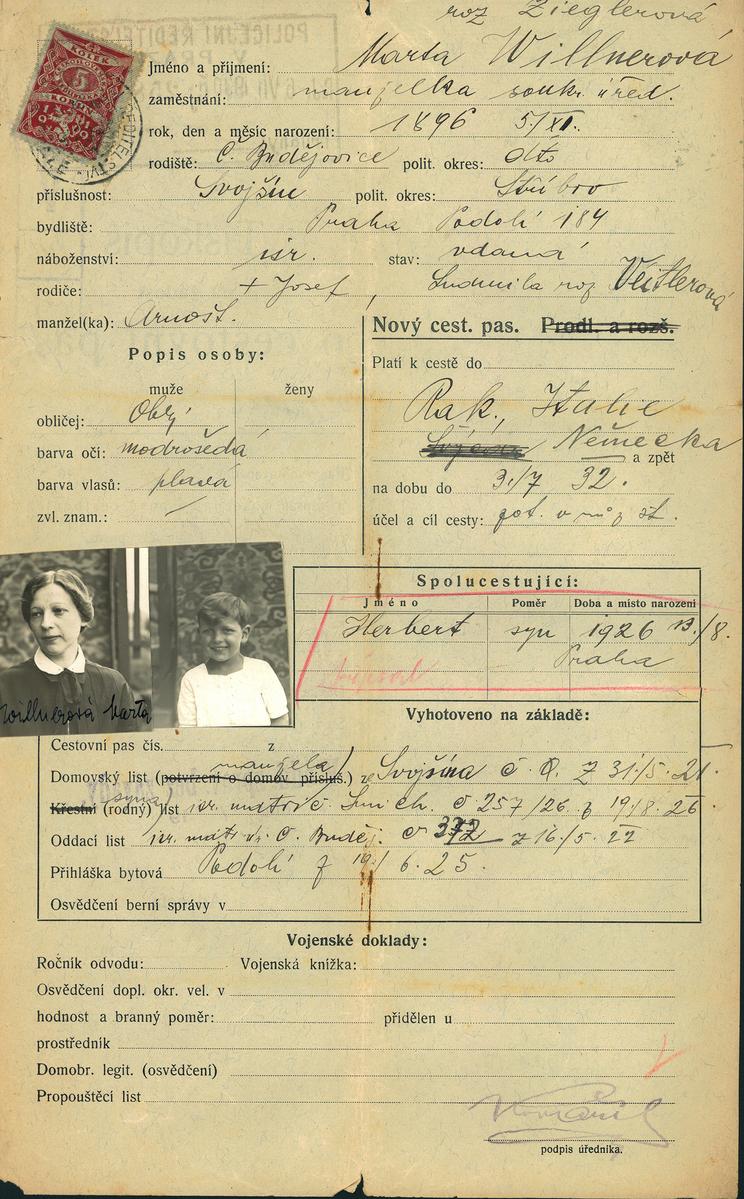 roz Zieglerová
KOLEK
5
Jméno a příjmení: Marta Willnerová
zaměstnání: manželka soukr. úřed.
rok, den a měsíc narození: 1896 5/XI.
rodiště: Č. Budějovice polit. okres: dtto
příslušnost: Svojšín polit. okres: Stříbro
bydliště: Praha Podolí 184
náboženství: isr. stav: vdaná
rodiče: + Josef, Ludmila roz Veitlerová
manžel(ka): Arnošt.
Nový cest. pas. Prodl. a rozš.
Popis osoby:
Platí k cestě do
muže ženy
Rak., Italie
obličej: Obl.
Německa
barva očí: modrošedá
a zpět
barva vlasů: plavá
na dobu do 3./7 32.
zvl. znam.: —
účel a cíl cesty:
Spolucestující:
Jméno Poměr Doba a místo narození
Herbert syn 1926 13./8.
Praha
Willnerová Marta
Vyhotoveno na základě:
Cestovní pas čís. z
manžela
Domovský list (potvrzení o domov. přísluš.) ze Svojšína č. 0. z 31./5. 21.
syna
Křestní (rodný) list isr. matri č. Smích. č 257/26 z 19/8. 26
Oddací list isr. matr. Č. Buděj. č 372 z 16./5. 22
Přihláška bytová Podolí z 19/6. 25.
Osvědčení berní správy v
Vojenské doklady:
Ročník odvodu: Vojenská knížka:
Osvědčení dopl. okr. vel. v
hodnost a branný poměr: přidělen u
prostředník
Domobr. legit. (osvědčení)
Propouštěcí list
podpis úředníka.